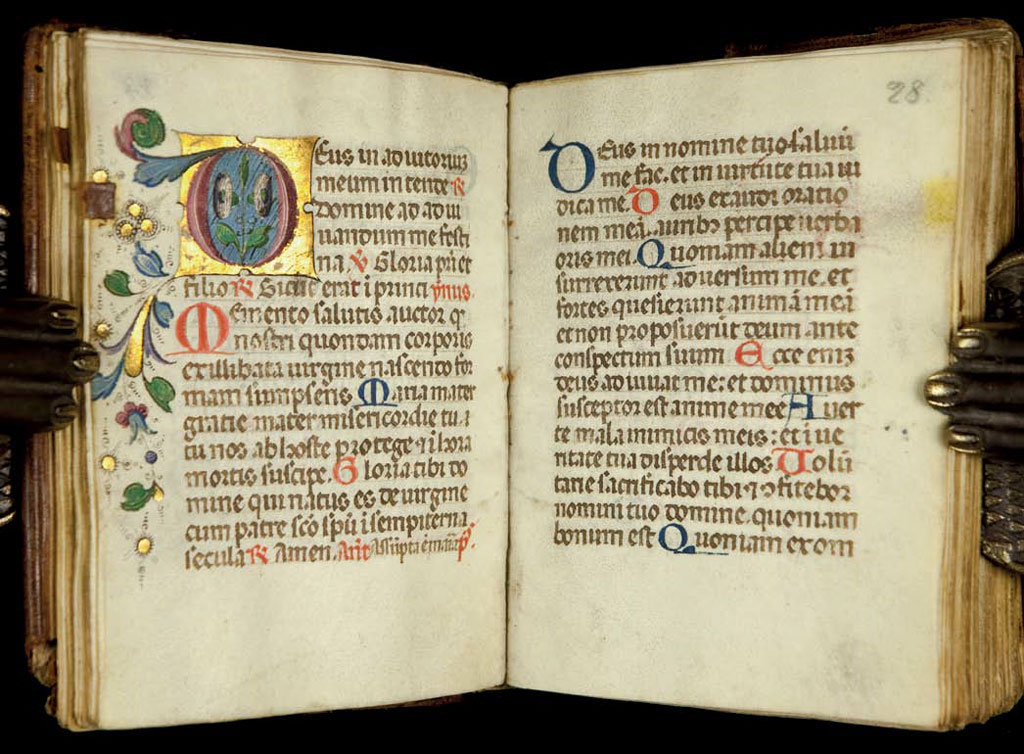 Deus in adiutorium
meum intende R
Domine ad adiu
uandum me festi
na. V Gloria pri et
filio R Sicut erat i princi ymus.
Memento salutis auctor q
nostri quondam corporis
ex illibata uirgine nascendo for
mam sumpseris. Maria mater
gratie mater misericordie tu
nos ab hoste protege & i hora
mortis suscipe. Gloria tibi do
mine qui natus es de uirgine
cum patre sco spu i sempiterna
secula R Amen. Ant Assupta e maria ps.
28
Deus in nomine tuo saluu
me fac. et in uirtute tua iu
dica me. Deus exaudi oratio
nem mea. auribus percipe uerba
oris mei. Quoniam alieni in
surrexerunt aduersum me. et
fortes quesierunt animā meā
et non proposuerūt deum ante
conspectum suum Ecce enim
deus adiuuat me: et dominus
susceptor est anime mee Auer
te mala inimicis meis: et i ue
ritate tua disperde illos Uolū
tarie sacrificabo tibi & confitebor
nomini tuo domine. quoniam
bonum est Quoniam ex om